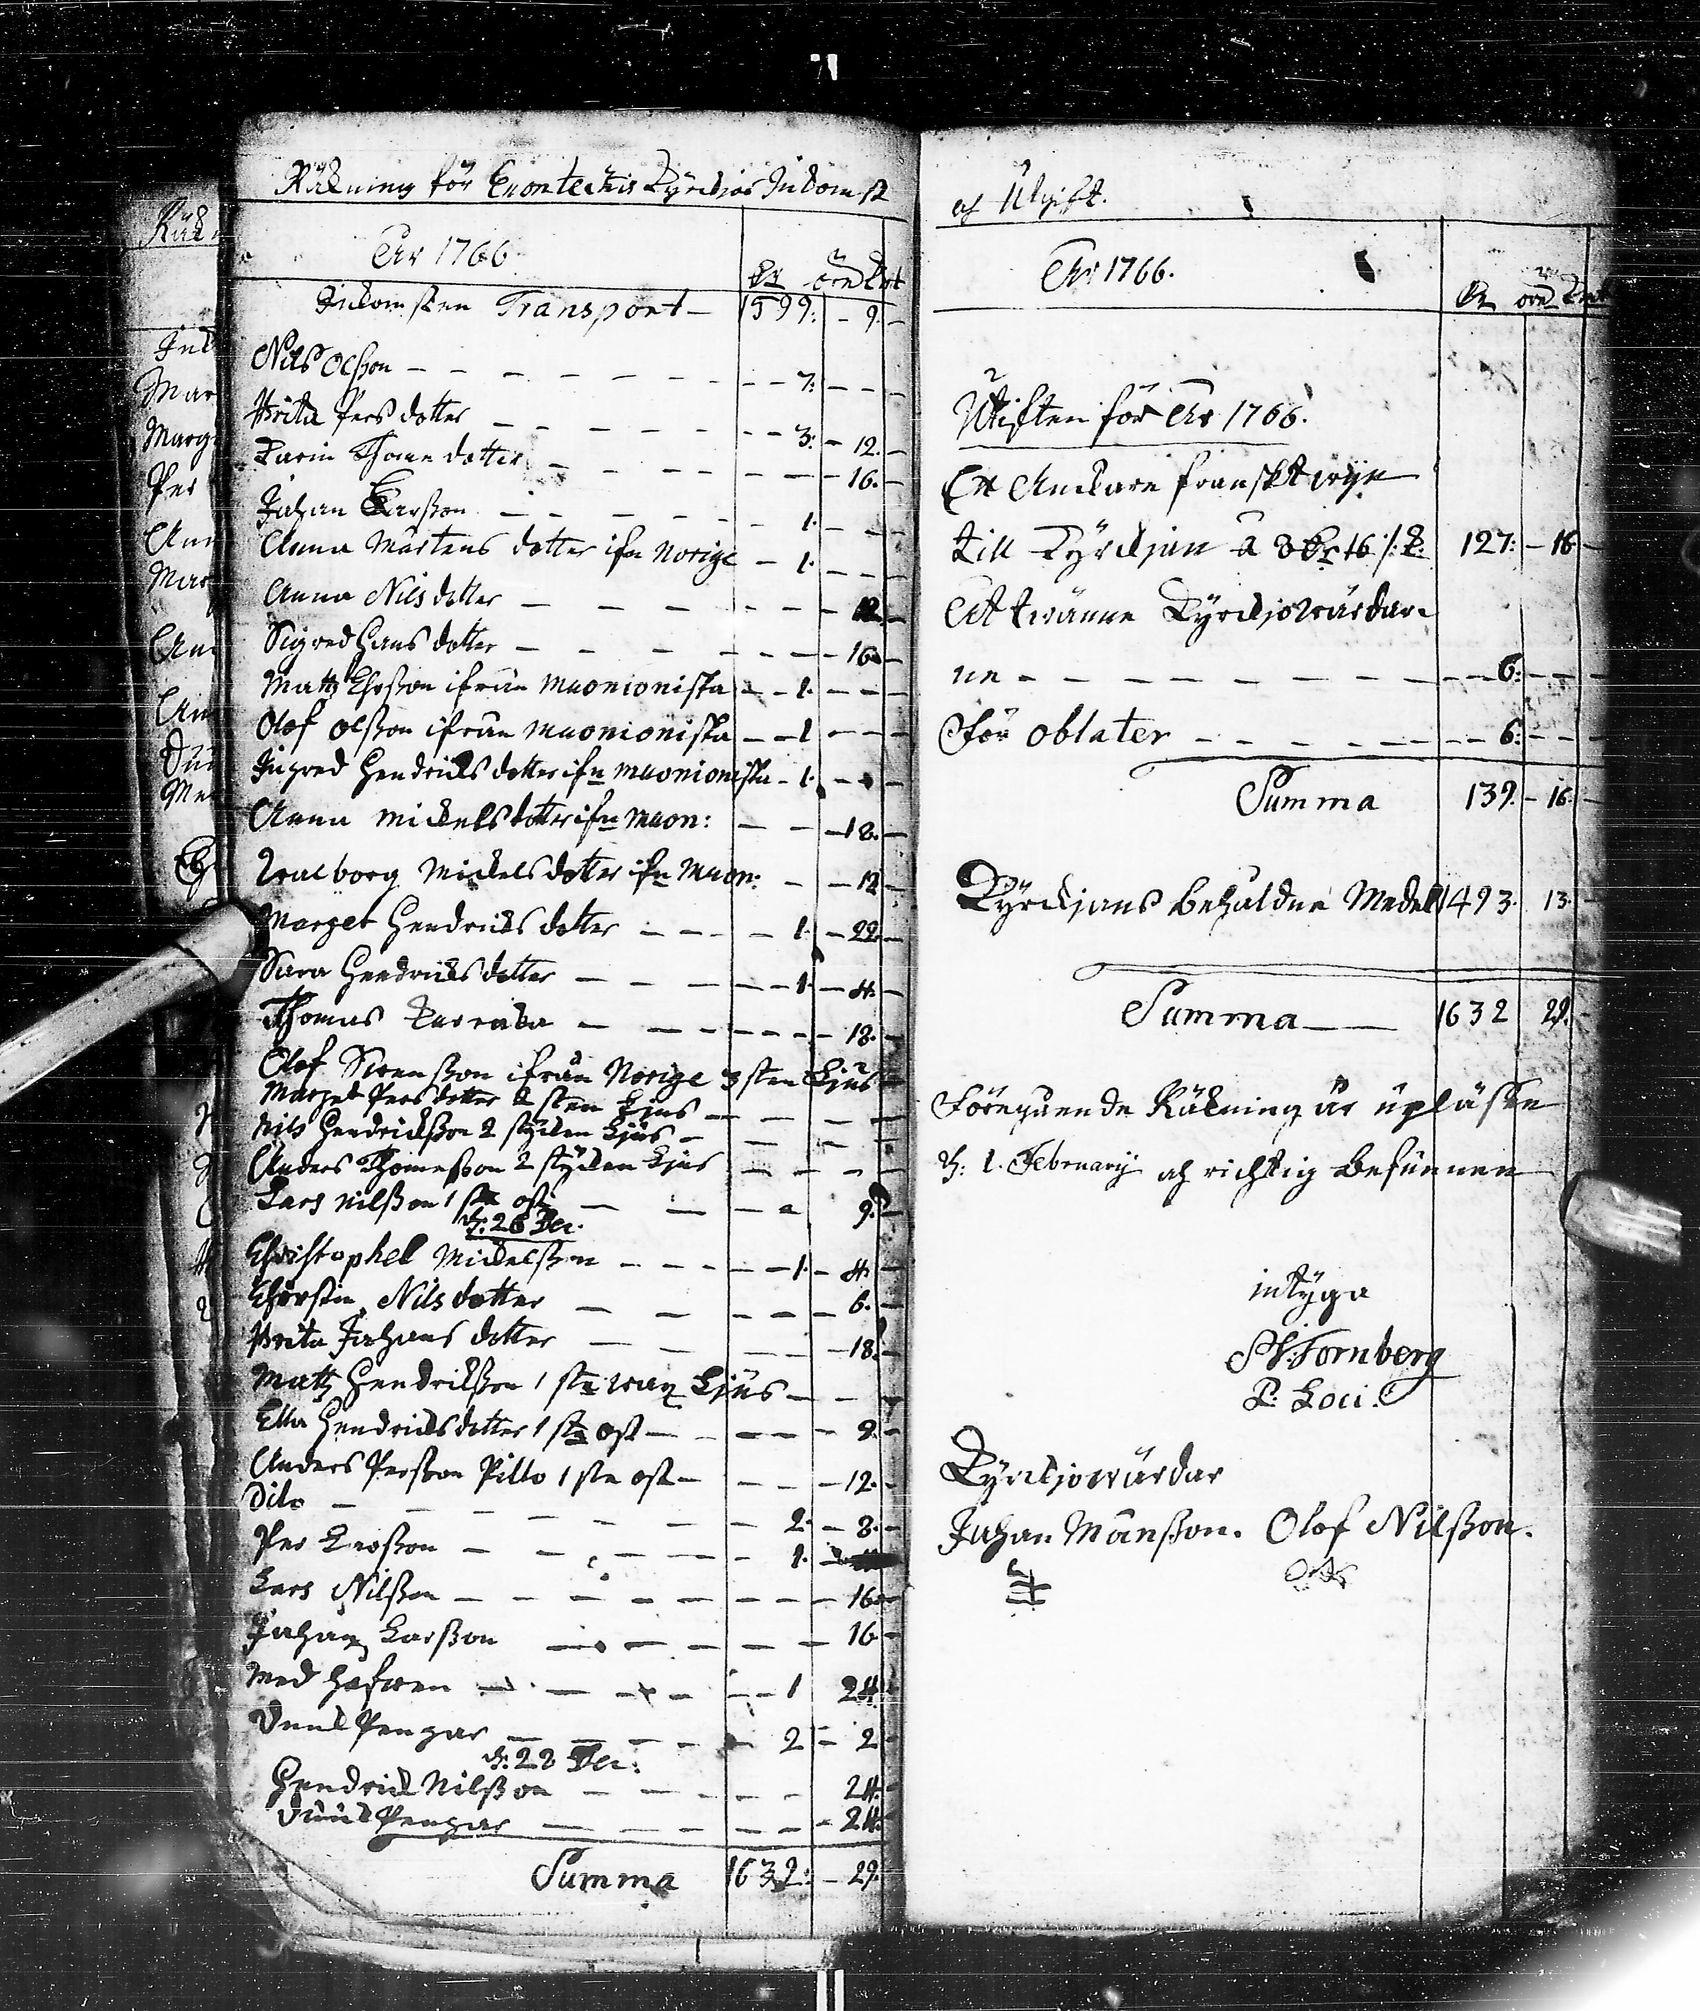 Räkning för Enontechis Kyrckjos Inkomst
År 1766
Dlr öre Kmt
Inkomsten Transport - 1599: - 9. -
Nils Olsson - - - 7: - - -
Brita Pers dotter - - - 3: - 12. -
Karin Thom dotter - - - 16. -
Johan Larsson - - - 1. - - -
Anna Mårtens dotter ifn Norige - 1. - - -
Anna Nils dotter - - - 12. -
Sigred Hans dotter - - - 16. -
Matts Ersson ifrån Muonioniska - - 1. - - -
Olof Olsson ifrån Muonioniska - - 1 - - -
Ingred Hendricks dotter ifn Muonioniska - 1. - - -
Anna Mickels dotter ifn Muon: - - - 18. -
Walborg Mickels dotter ifn Muon: - - 12 -
Marget Hendricks dotter - - - 1. - 22. -
Sara Hendricks dotter - - - 1. - 4. -
Thomas - - - 18. -
Olof Swensson ifrån Norige 3 sten Ljus
Marget Pers dotter 2 sten Ljus - - -
Nils Hendricksson 2 stycken Ljus - - -
Anders Thomesson 2 stycken Ljus - - -
Lars Nilsson 1 st ost - - - 9. -
d: 26 Dec.
Christophel Mickelsson - - - 1. - 4. -
Cherstin Nils dotter - - - 6. -
Brita Johans dotter - - - 18. -
Matts Hendricksson 1 st wax Ljus - - -
Ella Hendricks dotter 1 st ost - - - 9. -
Anders Persson Pilto 1 st ost - - - 12. -
Dito - - - 2. - 8. -
Per Larsson - - - 1. -
Lars Nilsson - - - 16. -
Johan Larsson - - - 16 -
Med Hafwen - - - 1 24.
Pengar - - - 2 - 2 -
d: 28 Dec:
Hendrick Nilsson - - - 24. -
Pengar - - - 24.
Summa 1632: - 29.
och Utgift.
År 1766.
Dlr öre Kmt
Utgiften för År 1766.
Ett Anckare franskt wijn
till Kyrckjan 127: - 16 -
Åt twänne Kyrckjowärdar
ne - - - 6: - - -
För oblater - - - 6: - - -
Summa 139. - 16. -
Kyrckjans behåldne Medel 1493. 13. -
Summa - - 1632 29. -
Föregående Räkning är upläsen
d: 1. February och richtig befunnen
intyga
Fornberg
P. Loci.
Kyrckjowärdar
Johan Månsson. Olof Nilsson.